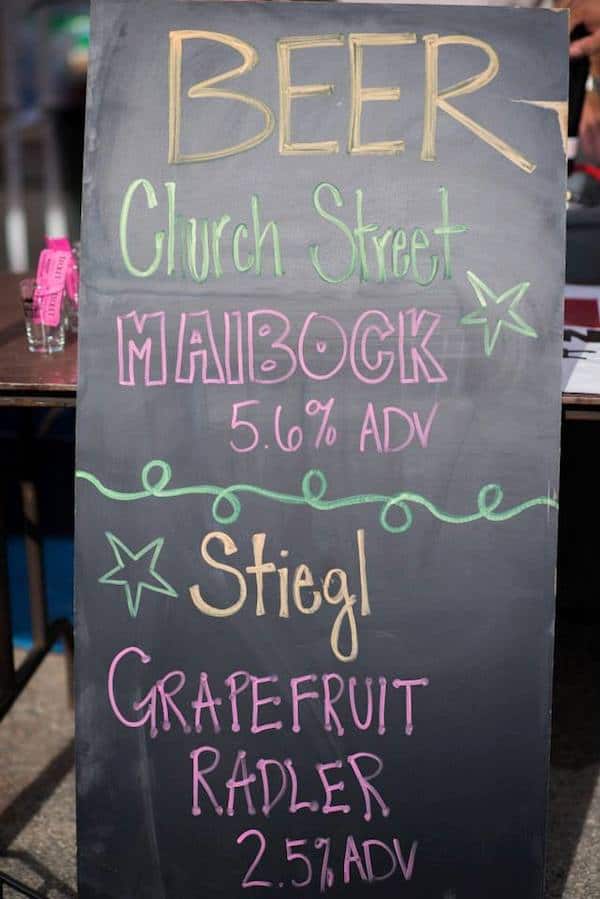 BEER
Church Street
MAIBOCK
5.6% ADV
Stiegl
GRAPEFRUIT
RADLER
2.5% ADV